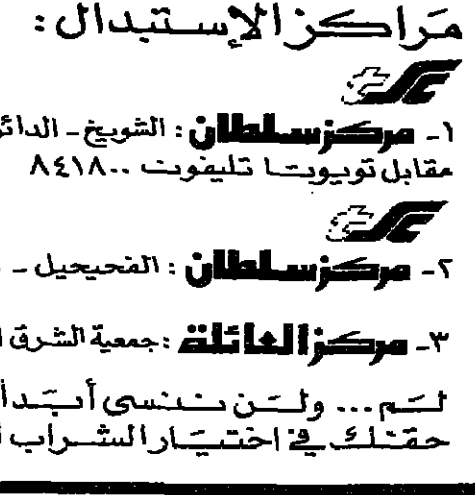 مراكز الإستبدال :
١- مركز سلطان : الشويخ - الدائر
مقابل تويوتا تليفون ٨٤١٨٠٠
٢- مركز سلطان : الفحيحيل -
٣- مركز العائلة : جمعية الشرق ا
لم ... ولن ننسى أبدا
حقك في اختيار الشراب ا